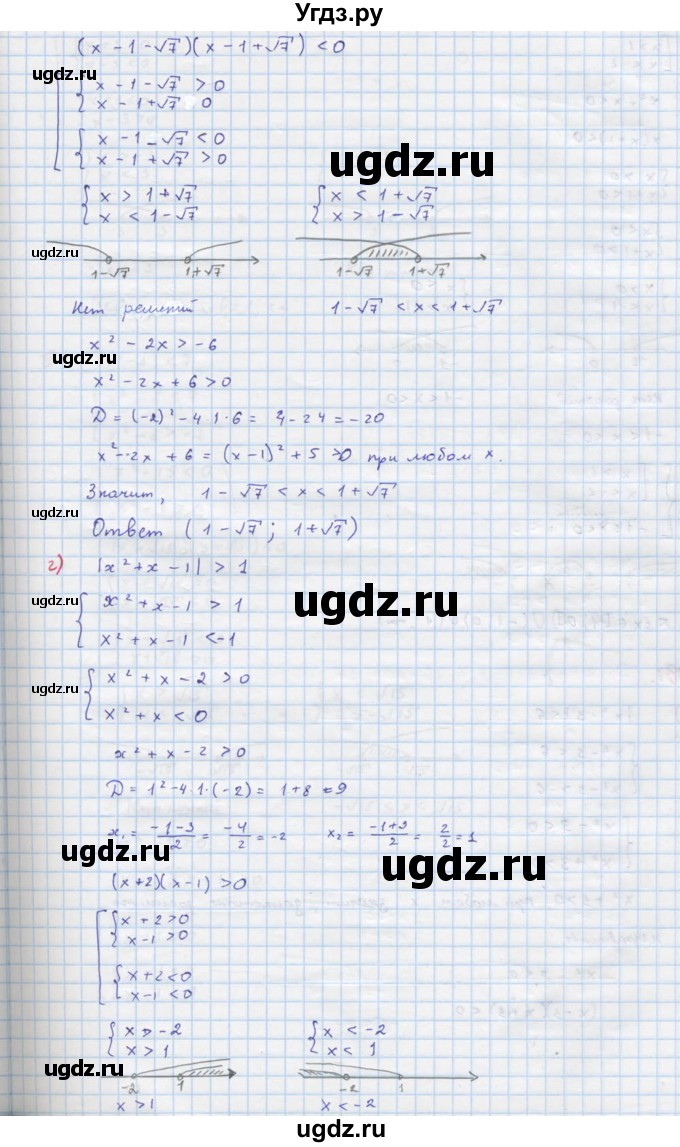 Угдз.ру
(x - 1 - √7)(x - 1 + √7) < 0
ugdz.ru
x - 1 - √7 > 0
x - 1 + √7 0
x - 1 - √7 < 0
x - 1 + √7 > 0
ugdz.ru
x > 1 + √7 x < 1 + √7
x < 1 - √7 x > 1 - √7
ugdz.ru
1-√7 1+√7 1-√7 1+√7
Нет решений 1 - √7 < x < 1 + √7
x² - 2x > -6
ugdz.ru
x² - 2x + 6 > 0
D = (-2)² - 4·1·6 = 4 - 24 = -20
ugdz.ru
x² - 2x + 6 = (x-1)² + 5 > 0 при любом x.
Значит, 1 - √7 < x < 1 + √7
ugdz.ru
Ответ (1 - √7; 1 + √7)
г) |x² + x - 1| > 1
ugdz.ru
x² + x - 1 > 1
ugdz.ru
x² + x - 1 < -1
x² + x - 2 > 0
ugdz.ru
x² + x < 0
x² + x - 2 > 0
D = 1² - 4·1·(-2) = 1 + 8 = 9
x₁ = (-1-3)/2 = -4/2 = -2 x₂ = (-1+3)/2 = 2/2 = 1
ugdz.ru
ugdz.ru
(x+2)(x-1) > 0
x + 2 > 0
x - 1 > 0
x + 2 < 0
x - 1 < 0
x > -2 x < -2
x > 1 x < 1
ugdz.ru
-2 1 -2 1
x > 1 x < -2